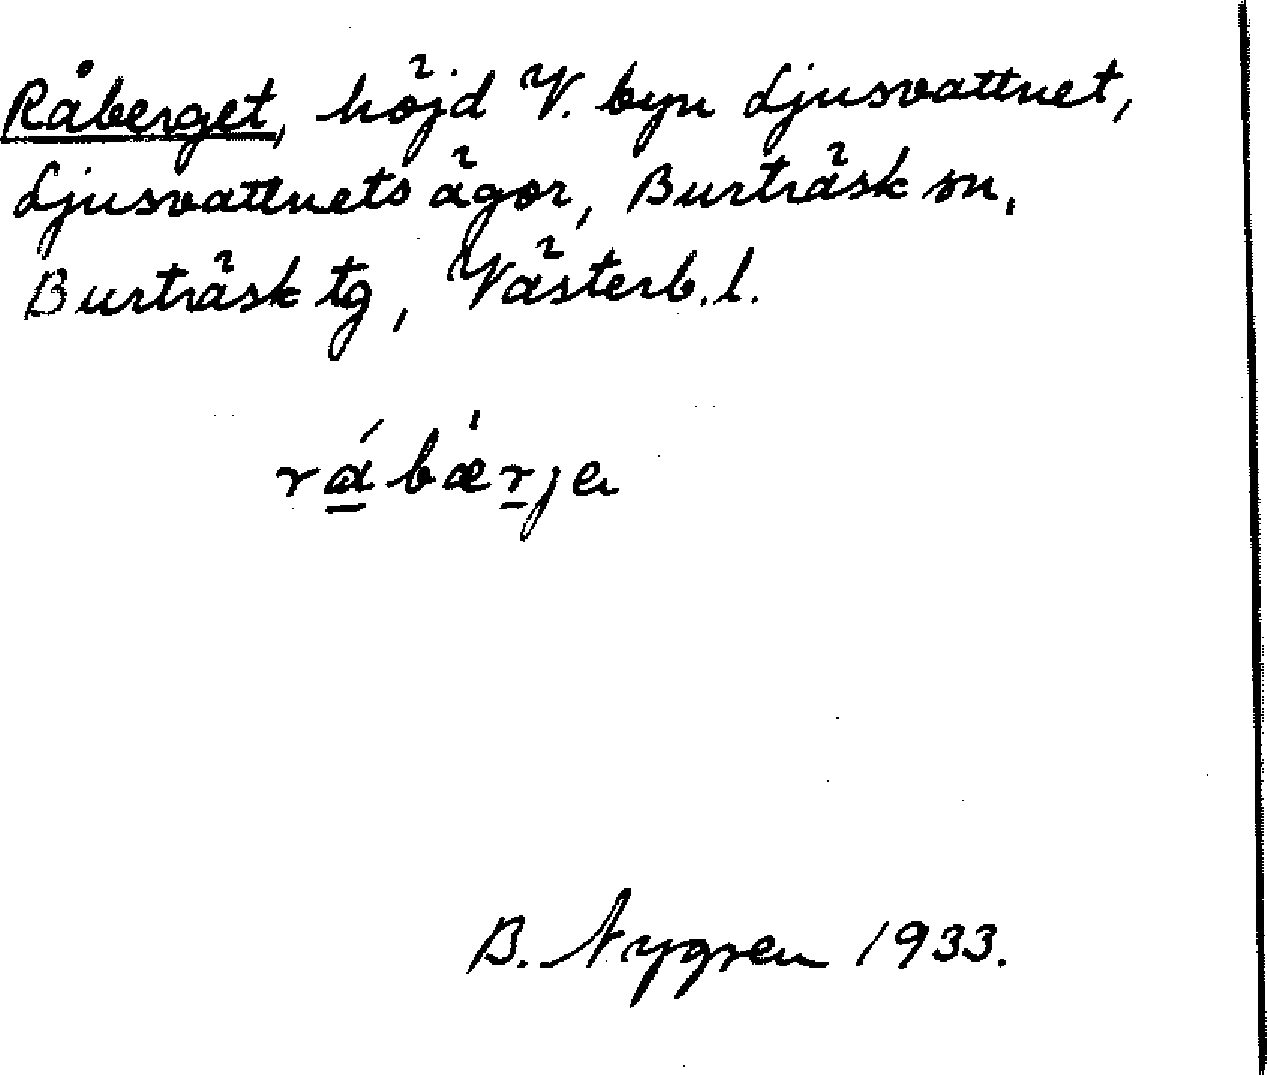 Råberget, höjd V. byn Ljusvattnet,
Ljusvattnets ägor, Burträsk sn,
Burträsk tg, Västerb. l.
rá̱bæ̍ṟja
B. Nygren 1933.